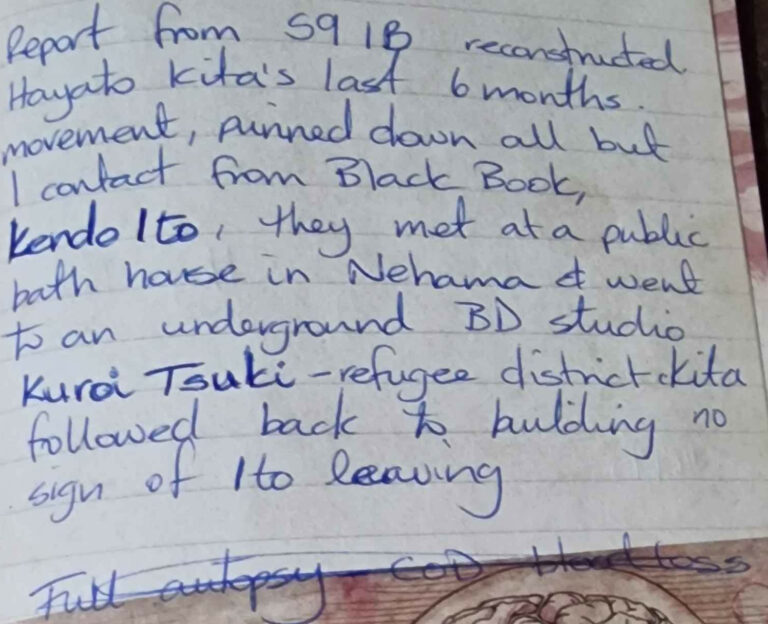 Report from S9 1B reconstructed
Hayato Kita's last 6 months.
movement, pinned down all but
1 contact from Black Book,
Kendo Ito, they met at a public
bath house in Nehama & went
to an underground BD studio
Kuroi Tsuki - refugee district. Kita
followed back to building no
sign of Ito leaving
Full autopsy - COD blood loss